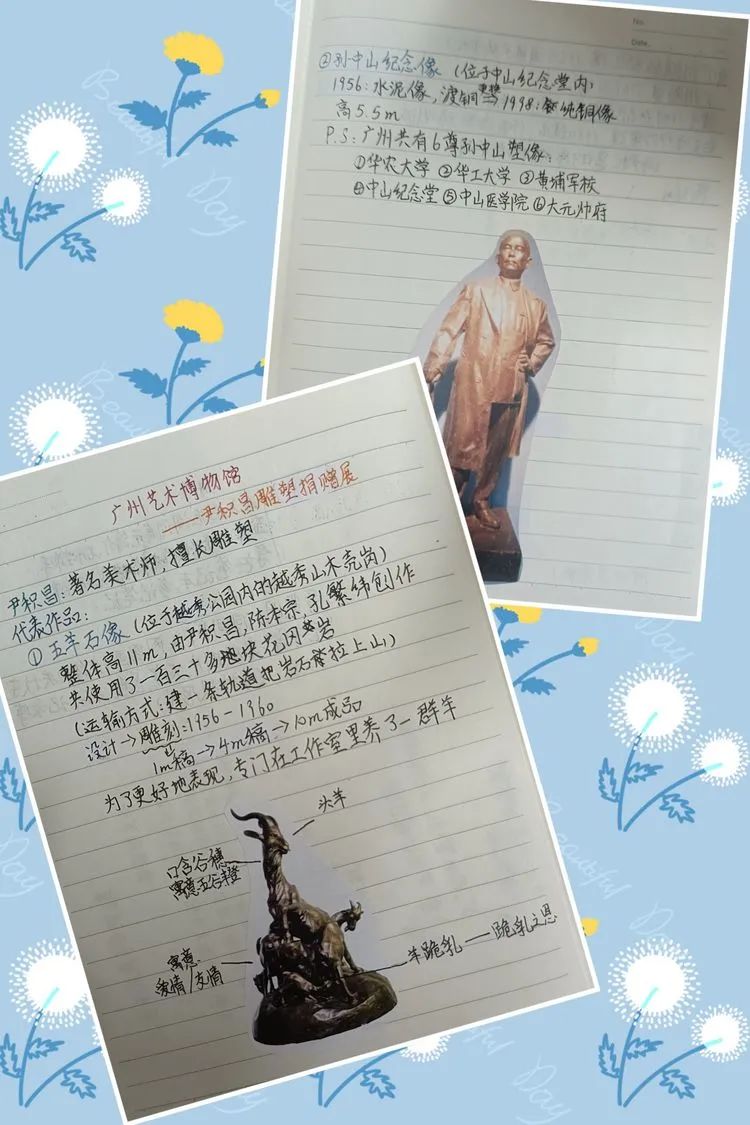 广州艺术博物馆
——尹积昌雕塑捐赠展
尹积昌：著名美术师，擅长雕塑
代表作品：
① 五羊石像（位于越秀公园内的越秀山木壳岗）
整体高11m，由尹积昌，陈本宗，孔繁纬创作
共使用了一百三十多块花冈岩
（运输方式：建一条轨道把岩石拉上山）
设计→雕刻：1956-1960
1m稿→4m稿→10m成品
为了更好地表现，专门在工作室里养了一群羊
头羊
口含谷穗
寓意五谷丰登
寓意
爱情/友情
羊跪乳——跪乳之恩
No.
Date.
②孙中山纪念像（位于中山纪念堂内）
1956：水泥像，渡铜→1998：纯铜像
高5.5m
P.S：广州共有6尊孙中山塑像：
①华农大学 ②华工大学 ③黄埔军校
④中山纪念堂 ⑤中山医学院 ⑥大元帅府
Beautiful Day
Beautiful Day
Beautiful Day